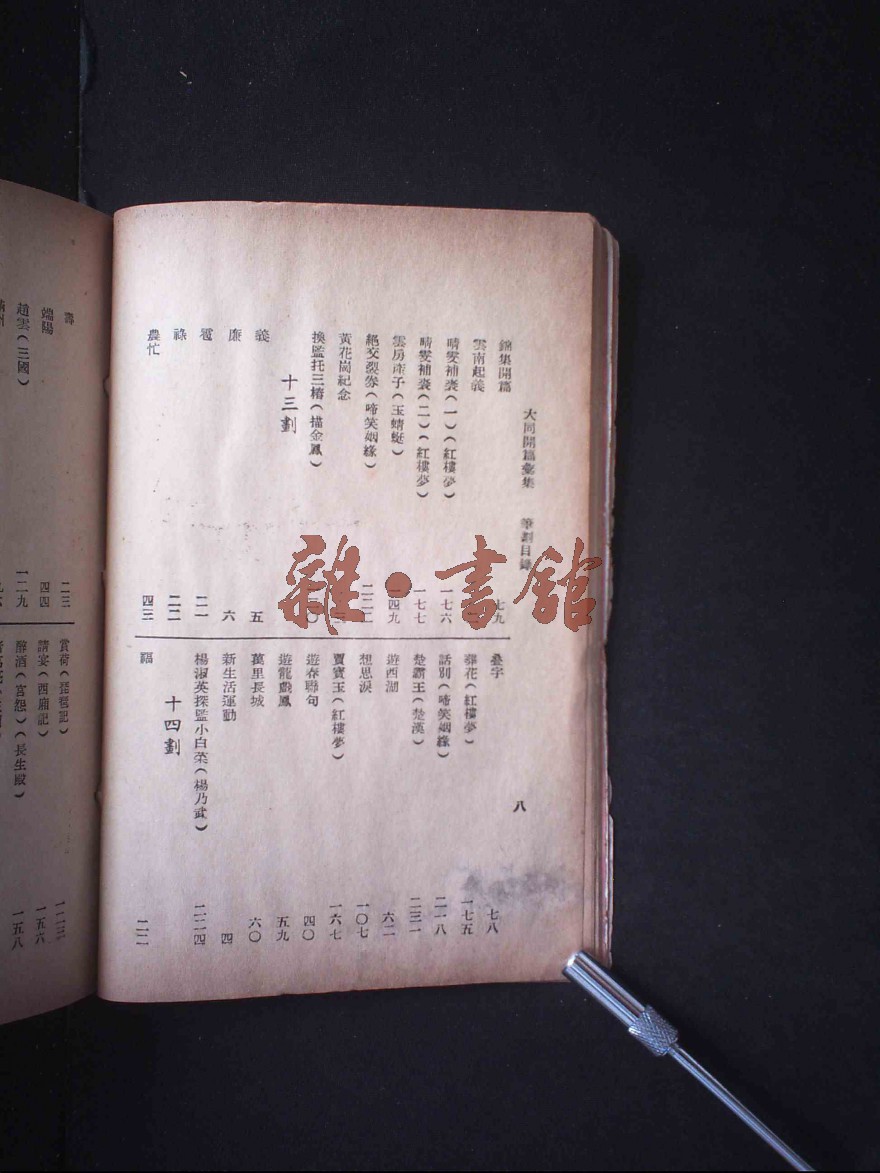 大同開篇彙集 筆劃目錄 八
錦集開篇 七九
雲南起義
晴雯補裘(一)(紅樓夢) 一七六
晴雯補裘(二)(紅樓夢) 一七七
雲房產子(玉蜻蜓) 一四九
絕交裂券(啼笑姻緣) 二二二
黃花崗紀念
換監托三樁(描金鳳)
十三劃
義 五
廉 六
雹 二一
祿 二二
農忙 四三
疊字 七八
葬花(紅樓夢) 一七五
話別(啼笑姻緣) 二一八
楚霸王(楚漢) 二三一
遊西湖 六二
想思淚 一〇七
賈寶玉(紅樓夢) 一六七
遊春聯句 四〇
遊龍戲鳳 五九
萬里長城 六〇
新生活運動 四
楊淑英探監小白菜(楊乃武) 二二四
十四劃
福 二二
壽 二三
端陽 四四
趙雲(三國) 一二九
賞荷(琵琶記) 一二三
請宴(西廂記) 一五六
醉酒(宮怨)(長生殿) 一五八
雜·書館